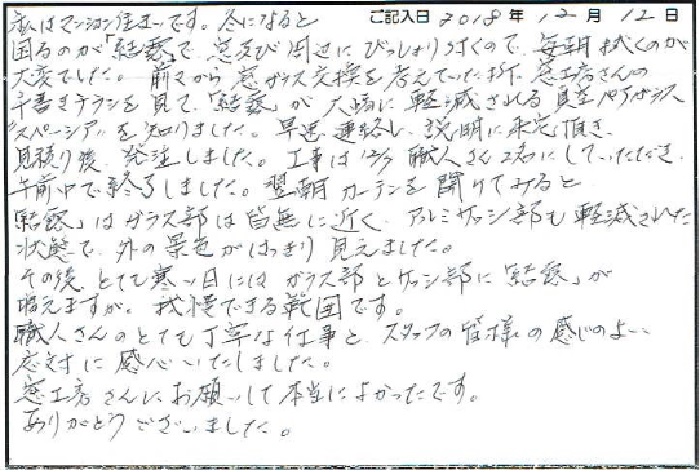 ご記入日 2018年 12月 12日
私はマンション住まいです。冬になると
困るのが「結露」で、窓及び周辺にびっしょり付くので、毎朝拭くのが
大変でした。前々から窓ガラス交換を考えていた折、窓工房さんの
手書きチラシを見て、「結露」が大幅に軽減される真空ペアガラス
"スペーシア"を知りました。早速連絡し、説明に来宅頂き、
見積り後、発注しました。工事は12/7 職人さん2名にしていただき、
午前中で終了しました。翌朝カーテンを開けてみると
「結露」はガラス部は皆無に近く、アルミサッシ部も軽減された
状態で、外の景色がはっきり見えました。
その後、とても寒い日にはガラス部とサッシ部に「結露」が
増えますが、我慢できる範囲です。
職人さんのとても丁寧な仕事と、スタッフの皆様の感じのよい
応対に感心いたしました。
窓工房さんにお願いして本当によかったです。
ありがとうございました。